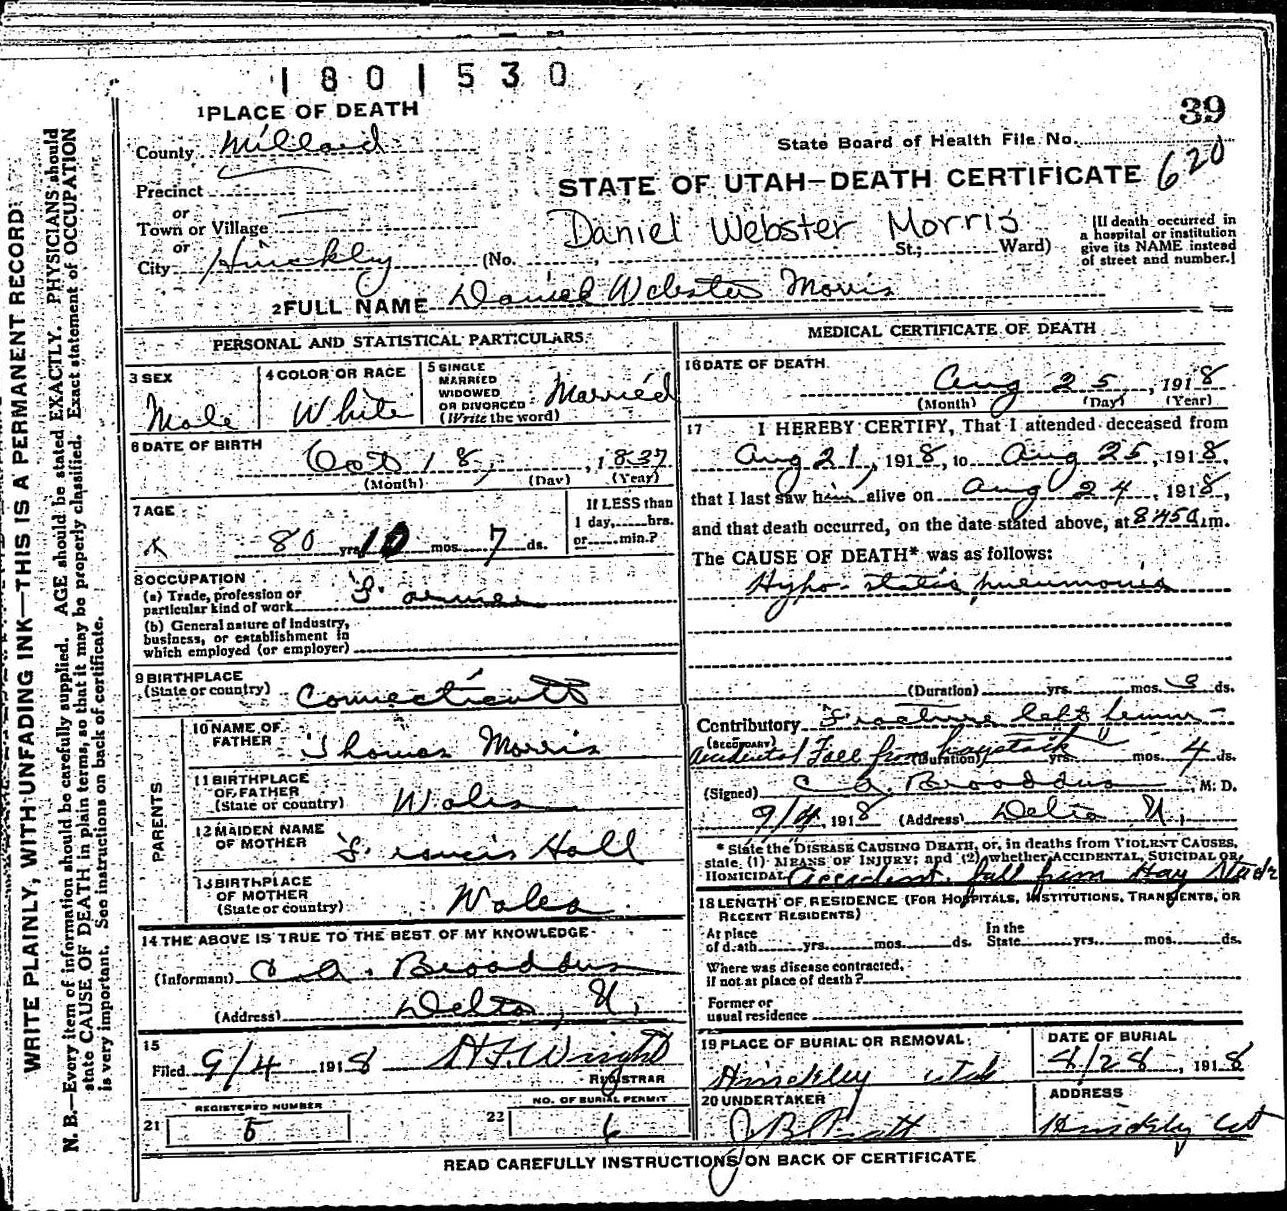 1801530
39
1 PLACE OF DEATH
County Millard
State Board of Health File No. 620
Precinct
STATE OF UTAH—DEATH CERTIFICATE
or
Town or Village
or
Daniel Webster Morris
City Hinckley (No. , St.; Ward)
[If death occurred in
a hospital or institution
give its NAME instead
of street and number.]
2 FULL NAME Daniel Webster Morris
PERSONAL AND STATISTICAL PARTICULARS
3 SEX
Male
4 COLOR OR RACE
White
5 SINGLE
MARRIED
WIDOWED
OR DIVORCED
(Write the word)
Married
6 DATE OF BIRTH
Oct 18, , 1837
(Month) (Day) (Year)
7 AGE
80 yrs 10 mos 7 ds.
If LESS than
1 day, hrs.
or min.?
8 OCCUPATION
(a) Trade, profession or
particular kind of work Farmer
(b) General nature of industry,
business, or establishment in
which employed (or employer)
9 BIRTHPLACE
(State or country) Connecticutt
PARENTS
10 NAME OF
FATHER Thomas Morris
11 BIRTHPLACE
OF FATHER
(State or country) Wales
12 MAIDEN NAME
OF MOTHER Francis Hall
13 BIRTHPLACE
OF MOTHER
(State or country) Wales
14 THE ABOVE IS TRUE TO THE BEST OF MY KNOWLEDGE
(Informant) C A. Broaddus
(Address) Delta, U,
15
Filed 9/4 1918 H F Wright
REGISTRAR
REGISTERED NUMBER
21 5
NO. OF BURIAL PERMIT
22 6
MEDICAL CERTIFICATE OF DEATH
16 DATE OF DEATH
Aug 25 , 1918
(Month) (Day) (Year)
17 I HEREBY CERTIFY, That I attended deceased from
Aug 21, 1918, to Aug 25, 1918,
that I last saw him alive on Aug 24, 1918,
and that death occurred, on the date stated above, at 845a.m.
The CAUSE OF DEATH* was as follows:
Hypo-static pneumonia
(Duration) yrs. mos. 3 ds.
Contributory Fracture left femur -
(SECONDARY)
Accidental Fall from haystack
(Duration) yrs. mos. 4 ds.
(Signed) C A. Broaddus, M. D.
9/4, 1918 (Address) Delta U,
* State the DISEASE CAUSING DEATH, or, in deaths from VIOLENT CAUSES,
state (1) MEANS OF INJURY; and (2) whether ACCIDENTAL, SUICIDAL OR
HOMICIDAL Accident. fall from Hay Stack
18 LENGTH OF RESIDENCE (FOR HOSPITALS, INSTITUTIONS, TRANSIENTS, OR
RECENT RESIDENTS)
At place
of death yrs. mos. ds.
In the
State yrs. mos. ds.
Where was disease contracted,
if not at place of death?
Former or
usual residence
19 PLACE OF BURIAL OR REMOVAL
Hinckley Utah
DATE OF BURIAL
8/28, 1918
20 UNDERTAKER
J B Pratt
ADDRESS
Hinckley Ut
READ CAREFULLY INSTRUCTIONS ON BACK OF CERTIFICATE
WRITE PLAINLY, WITH UNFADING INK—THIS IS A PERMANENT RECORD
N. B.—Every item of information should be carefully supplied. AGE should be stated EXACTLY. PHYSICIANS should
state CAUSE OF DEATH in plain terms, so that it may be properly classified. Exact statement of OCCUPATION
is very important. See instructions on back of certificate.